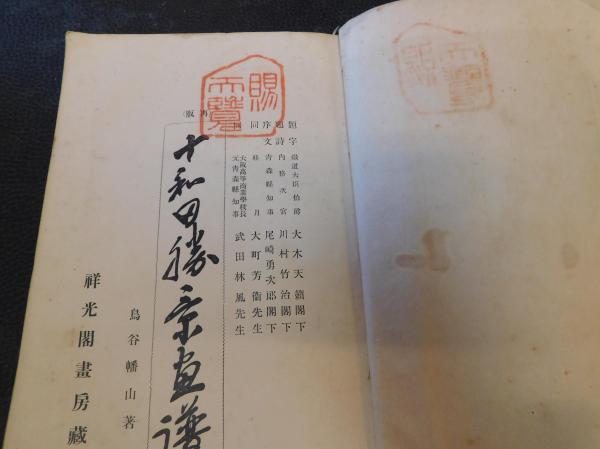 賜
天覽
再版
題字 鐵道大臣伯爵 大木天籟閣下
題詩 內務次官 川村竹治閣下
序文 青森縣知事 尾崎勇次郎閣下
同 桂月 大町芳衞先生
同 大阪高等商業學校長 元青森縣知事 武田林風先生
十和田勝景画譜
鳥谷幡山著
祥光閣畫房藏